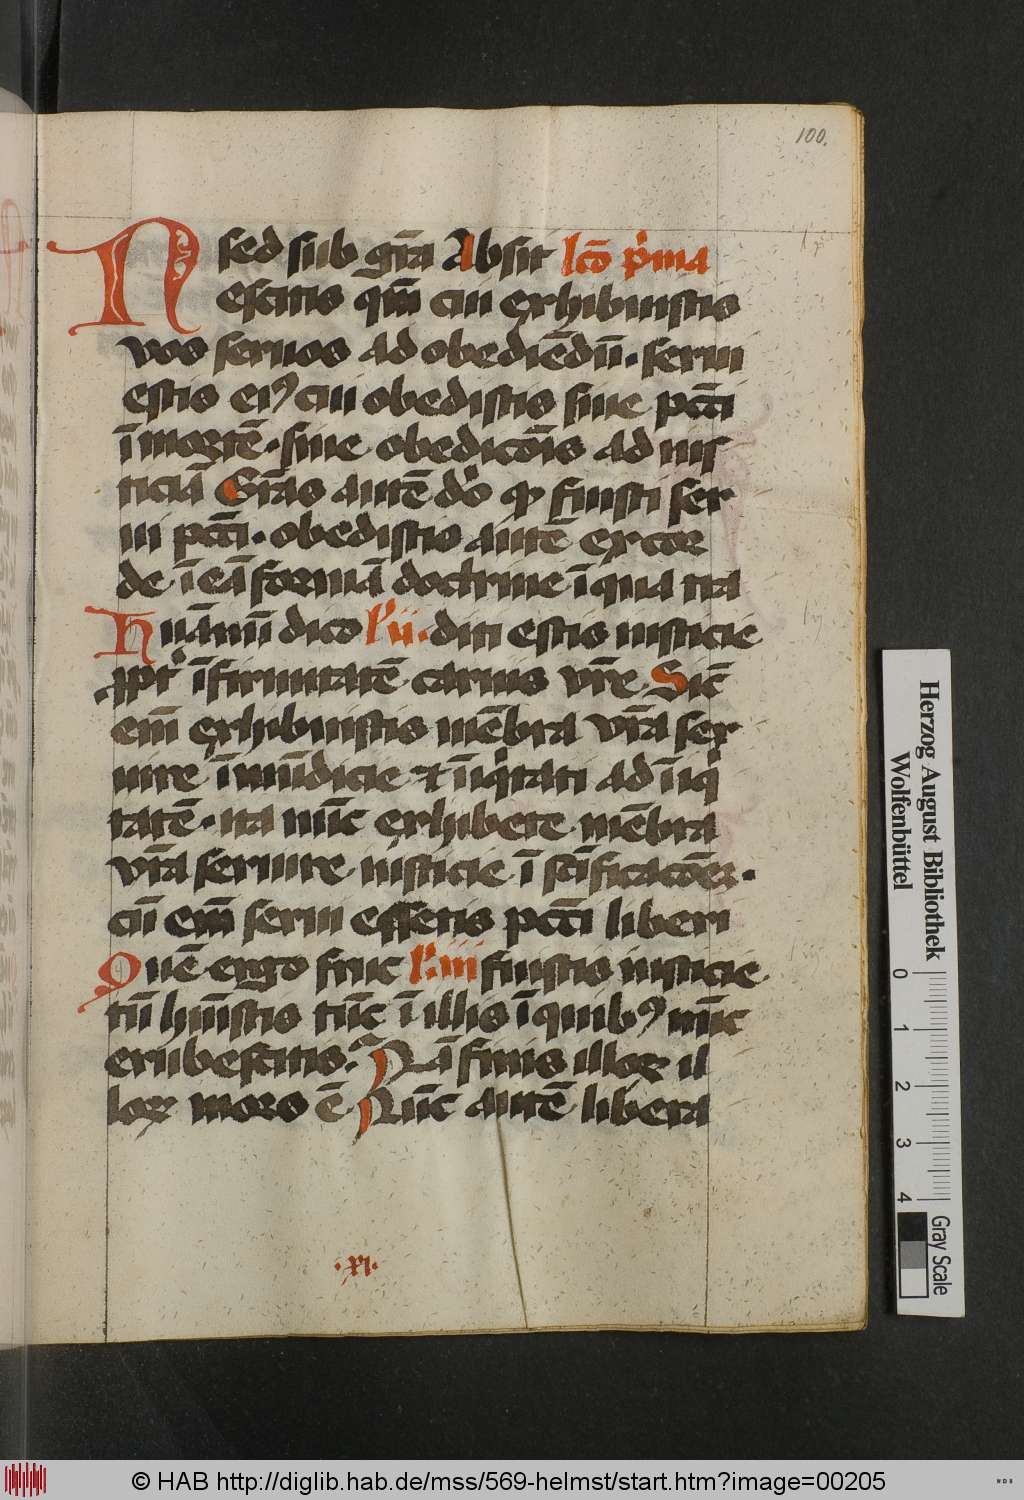 100.
sed sub gr̄a Absit lc̄o p̾ma
Nescitis qm̄ cui exhibuistis
vos seruos ad obediēdū · serui
estis eiꝰ cui obedistis siue pctī
ī mortē · siue obedicōis ad ius
ticiā Grās autē dō qꝫ fuistis ser
ui pctī · obedistis autē ex cor
de ī eā formā doctrine ī qua tra
Huānū dico l̾ ii · diti estis iusticie
ꝓpt̾ īfirmitatē carnis vr̄e Sic̄
em̄ exhibuistis mēbra vr̄a ser
uire ī mūdicie ⁊ īiq̾tati ad īiq̾
tatē · ita nūc exhibete mēbra
vr̄a seruire iusticie ī scīficacōeꝫ ·
cū em̄ serui essetis pctī liberi
Quē ergo fruc l̾ iii fuistis iusticie
tū hūistis tūc ī illis ī quibꝰ nūc
erubescitis · Nā finis illoꝝ il
loꝝ mors ē Nūc autē libera
· xi ·
Herzog August Bibliothek
Wolfenbüttel
0 1 2 3 4
Gray Scale
© HAB http://diglib.hab.de/mss/569-helmst/start.htm?image=00205